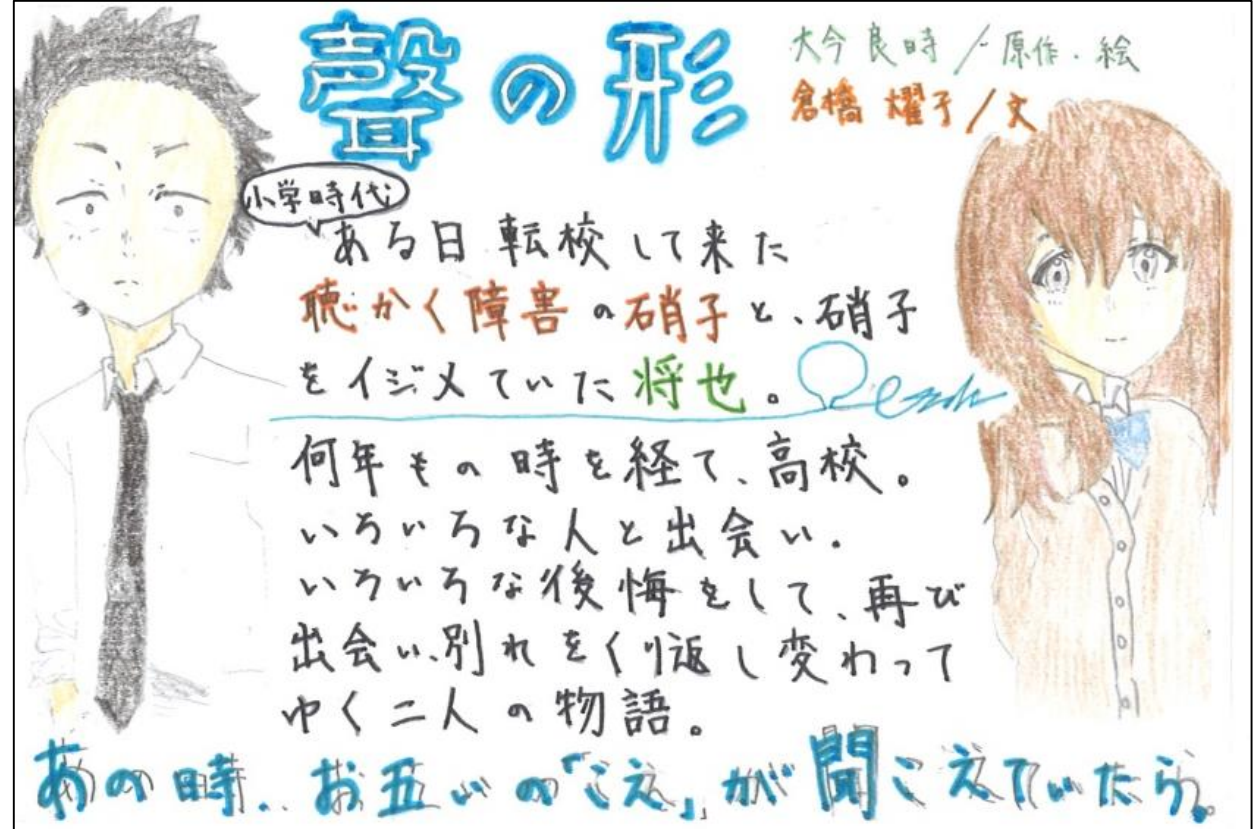 聲の形
大今良時/原作・絵
倉橋燿子/文
小学時代
ある日転校して来た
聴かく障害の硝子と、硝子
をイジメていた将也。
何年もの時を経て、高校。
いろいろな人と出会い、
いろいろな後悔をして、再び
出会い、別れをくり返し変わって
ゆく二人の物語。
あの時..お互いの「こえ」が聞こえていたら。